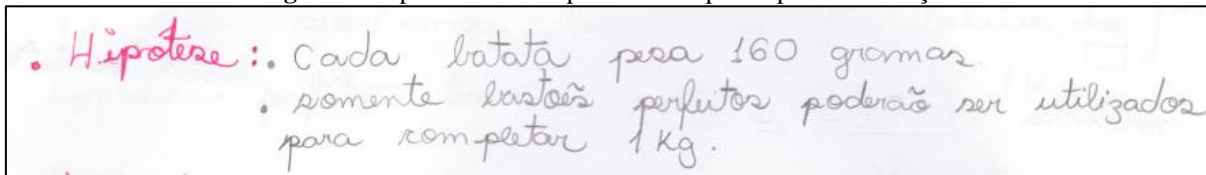 • Hipótese: • Cada batata pesa 160 gramas.
• somente bastões perfeitos poderão ser utilizados
para completar 1 Kg.